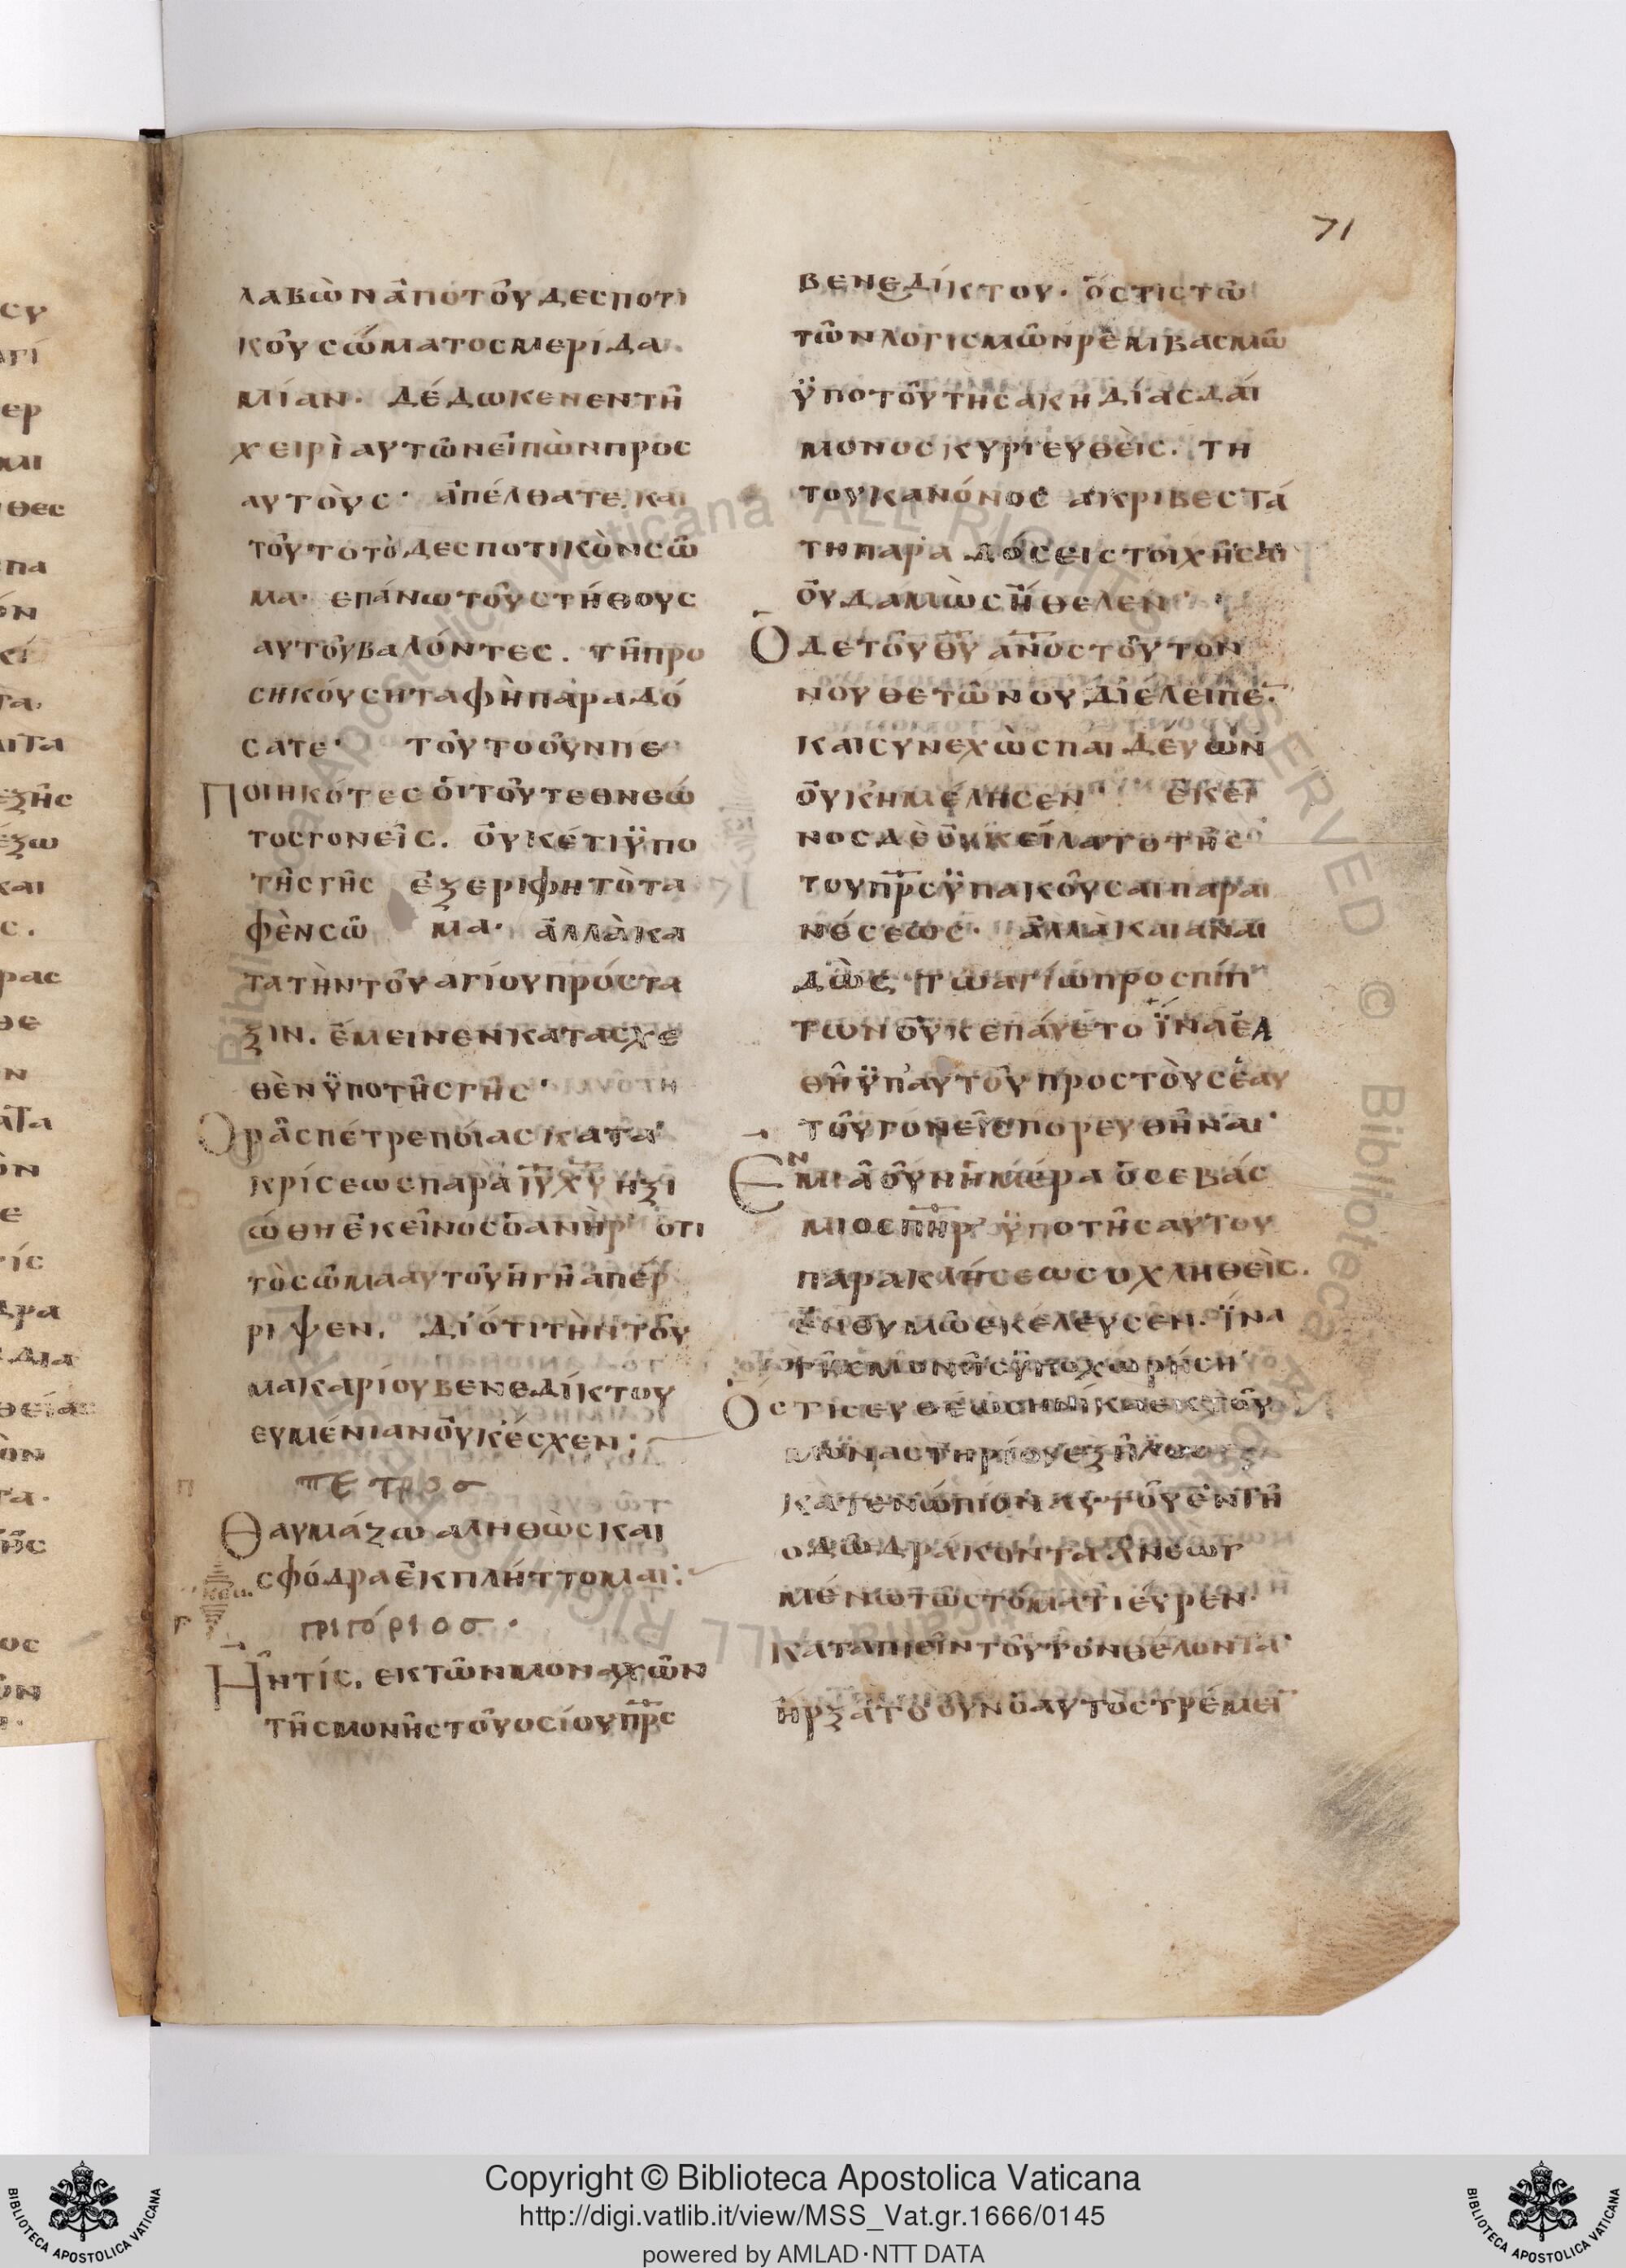 71
λαβὼν ἀπὸ τοῦ δεσποτι
κοῦ σώματος μερίδα
μίαν· δέδωκεν ἐν τῆ
χειρὶ αυτῶν εἰπὼν προς
αυτοὺς· ἀπέλθατε και
τοῦτο τὸ δεσποτικὸν σῶ
μα· επάνω τοῦ στήθους
αυτοῦ βαλόντες. τῆ προ
σηκούση ταφῆ παραδό
σατε· τοῦτο οὖν πε
Ποιηκότες ὁι τοῦ τεθνεώ
τος γονεῖς. οὐκέτι ϋπο
τῆς γῆς ἐξερίφη τὸ τα
φὲν σῶ μα· ἀλλὰ κα
τα τὴν τοῦ αγίου πρόστα
ξιν. ἔμεινεν κατασχε
θὲν ϋπο τῆς γῆς·
Ορᾶς πέτρε ποίας κατα
κρίσεως παρὰ ιῦ χῦ ηξι
ώθη ἐκεῖνος ὁ ανὴρ· ὁτι
τὸ σῶμα αυτοῦ ἡ γῆ απέρ
ριψεν. διότι τὴν τοῦ
μακαρίου βενεδίκτου
ευμένιαν οὐκ έσχεν;
πετροσ
Θαυμάζω αληθὼς και
σφόδρα ἐκπλήττομαι:
κεω.
γριγόριοσ·
Ἡ̂ν τίς. εκ τῶν μοναχῶν
τῆς μονῆς τοῦ οσίου πρ̅ς
βενεδίκτου· ὅστις τῶ
τῶν λογισμῶν ρεμιβασμῶ
ϋπο τοῦ τῆς ακηδίας δαί
μονος κυριευθεὶς. τη
του κανόνος ακριβεστά
τη παραδόσει στοιχῆσαι
οὐδαμὼς ἤθελεν·
Ὁ δε τοῦ θῦ ανο̅ς τοῦτον
νουθετῶν ου διέλειπε.
και συνεχὼς παιδεύων
οὐκ ημέλησεν· ἐκεῖ
νος δὲ οὐκ είλατο τῆς
του πρ̅ς ϋπακοῦσαι παραι
νέσεως· ἀλλὰ και αναι
δὼς τω αγίω προσπίπ
των οὐκ επάυετο ϊνα εα
θῆ ϋπ' αυτοῦ προς τοὺς ἑαυ
τοῦ γονεῖς πορευθῆναι·
Ἐν μιᾶ οὖν ημέρα ὁ σεβάς
μιος πη̅ρ ϋπο τῆς αυτου
παρακλήσεως οχληθεὶς.
ἐν θυμῶ ἐκέλευσεν. ϊνα
τῆς μονῆς ϋποχωρήση·
Ὁστις ευθέως ηνίκα εκ τοῦ
μοναστηρίου εξῆλθεν
κατενώπιον αυτοῦ ἐν τῆ
οδῶ δράκοντα ανεωγ
μένω τῶ στόματι εύρεν·
καταπιεῖν τοῦτον θέλοντα·
ἤρξατο ουν ὁ αυτὸς τρέμει̅
Copyright © Biblioteca Apostolica Vaticana
http://digi.vatlib.it/view/MSS_Vat.gr.1666/0145
powered by AMLAD·NTT DATA